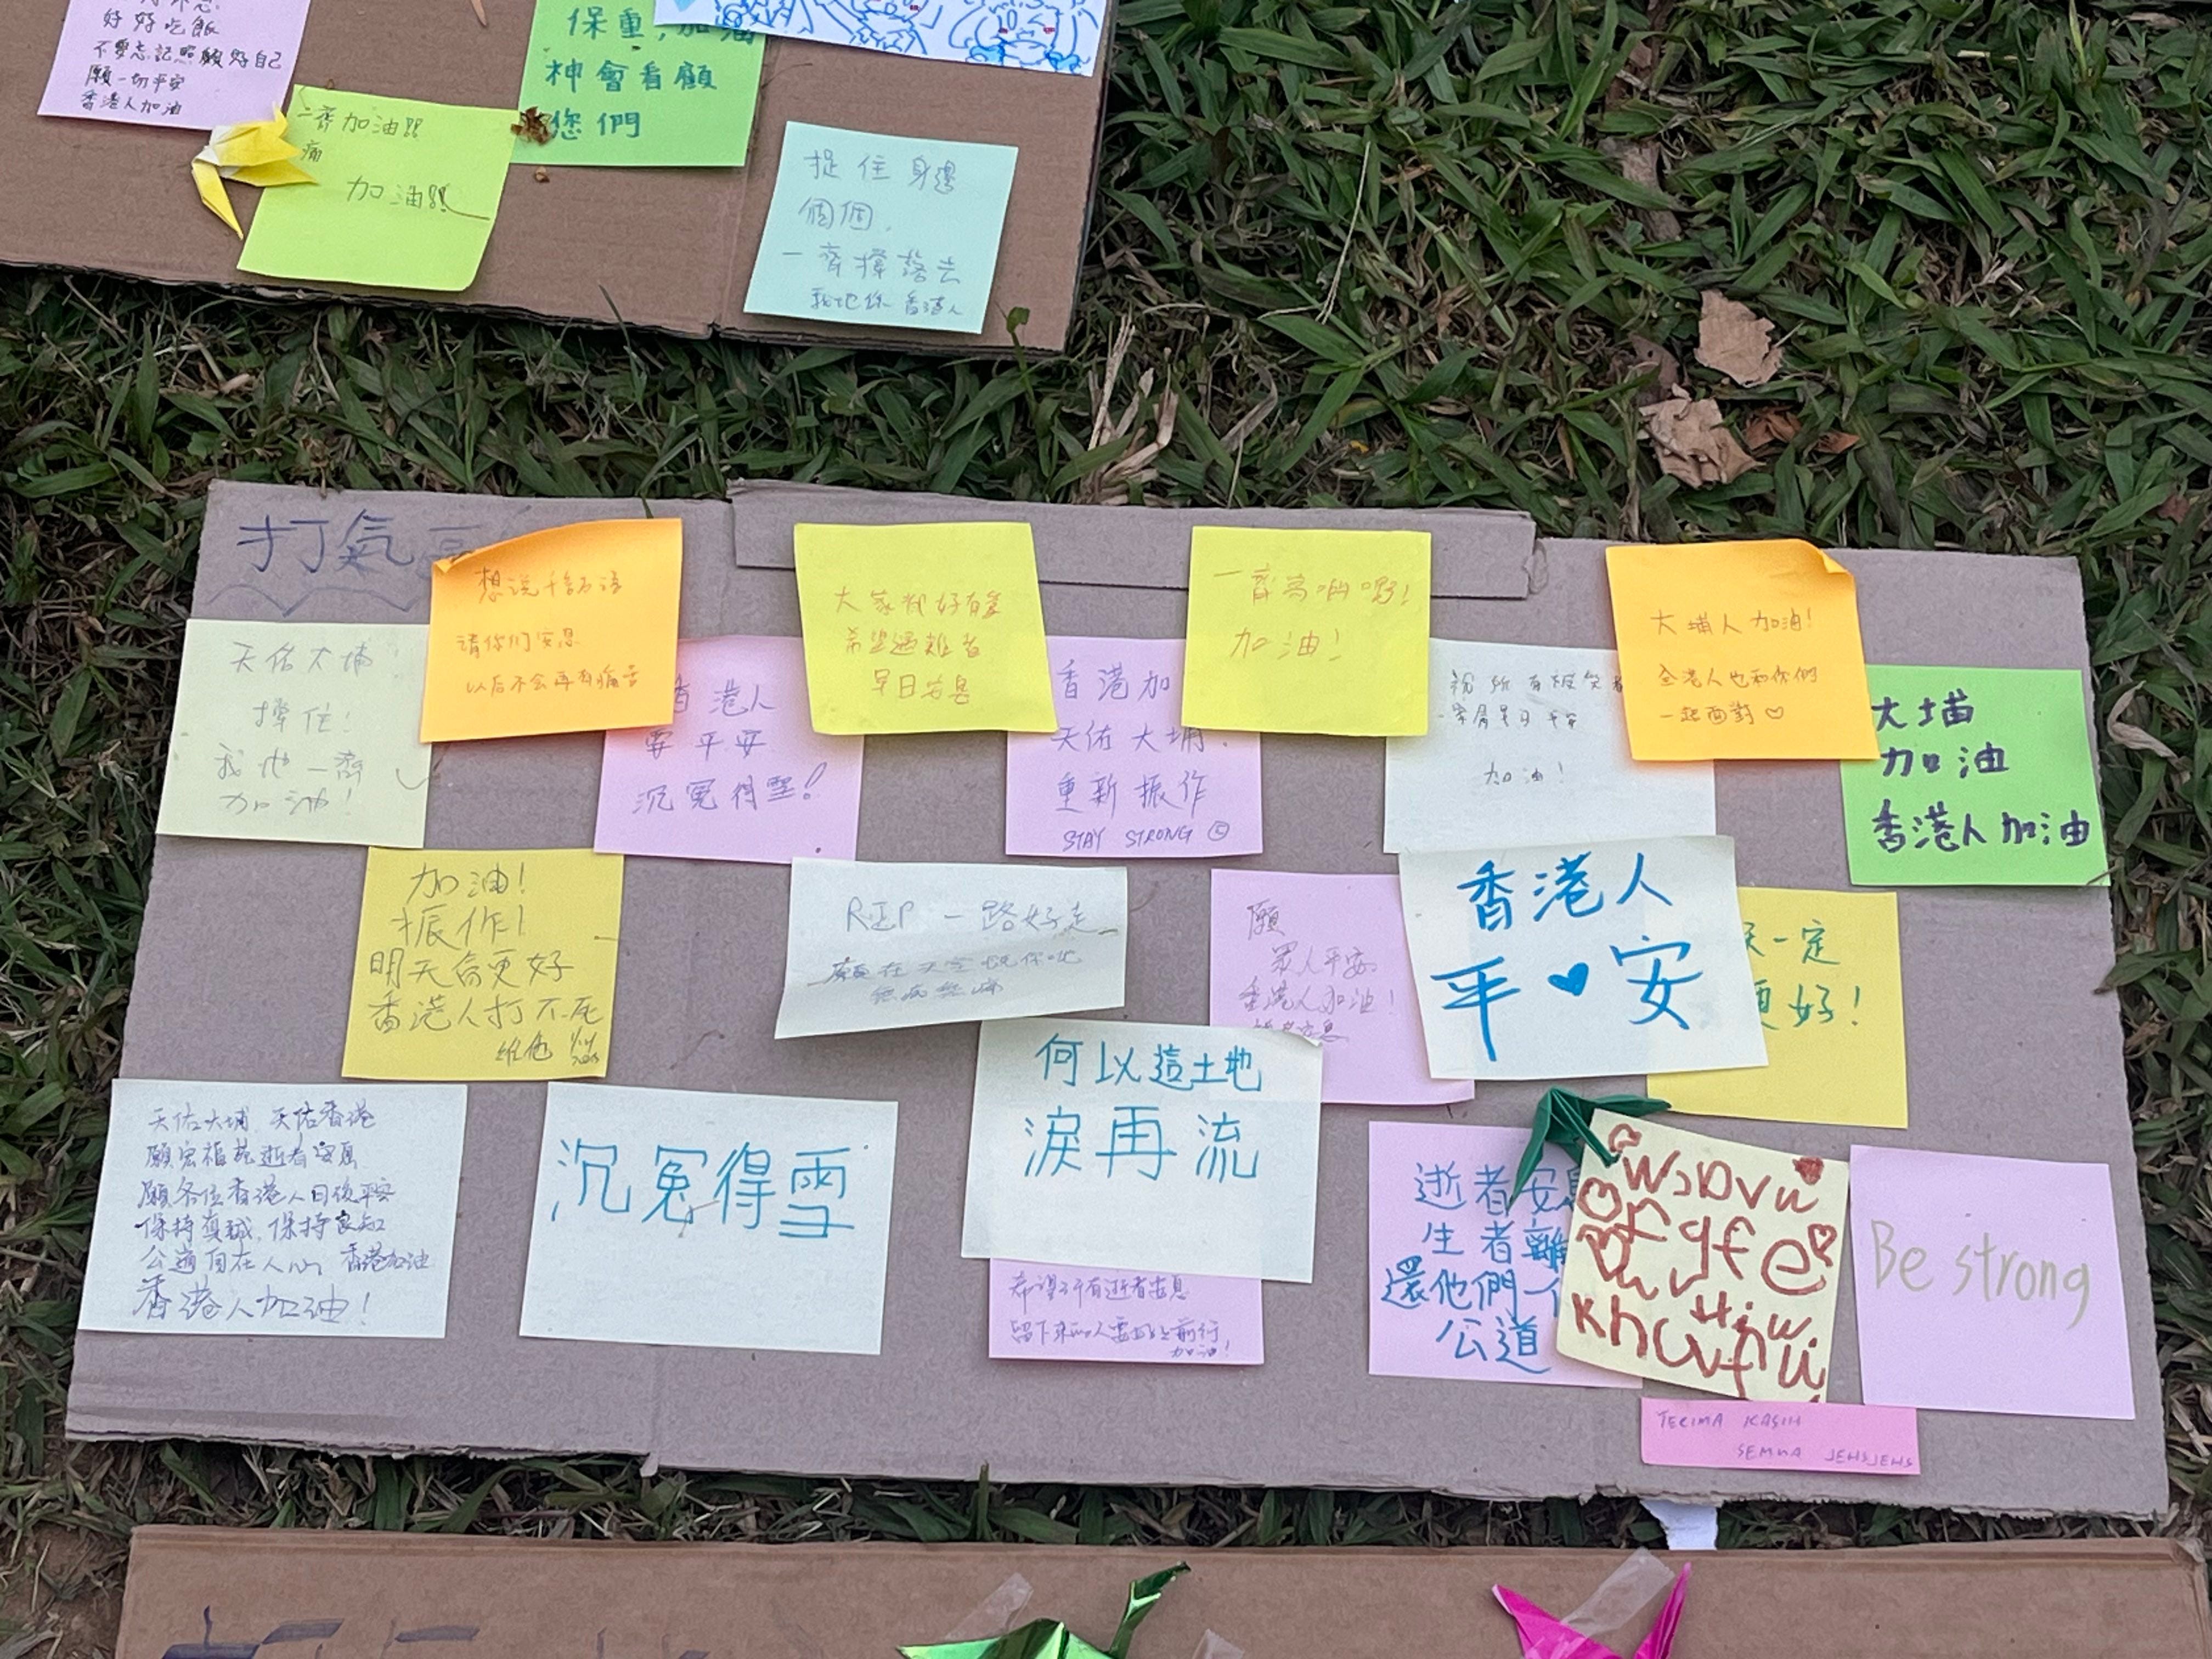 好好吃飯
不要忘記照顧好自己
願一切平安
香港人加油
一齊加油!!
痛
加油!!
保重,加油
神會看顧
您們
捉住身邊
個個,
一齊撐落去
我地係香港人
打氣
天佑大埔
撐住!
我地一齊
加油!
想说千言万语
请你们安息
以后不会再有痛苦
香港人
要平安
沉冤得雪!
大家都好有愛
希望遇難者
早日安息
香港加
天佑大埔!
重新振作
STAY STRONG
一齊
加油!
加油!
大埔人加油!
全港人也和你們
一起面對♡
大埔
加油
香港人加油
加油!
振作!
明天會更好
香港人打不死
維他
RIP 一路好走
願
眾人平安
香港人加油!
香港人
平♥安
天一定
更好!
天佑大埔 天佑香港
願宏福苑逝者安息
願各位香港人日後平安
保持真誠,保持良知
公道自在人心 香港加油
香港人加油!
沉冤得雪
何以這土地
淚再流
希望所有逝者安息
留下來的人要 前行,
加油!
逝者安息
生者離
還他們一個
公道
Be strong
TERIMA KASIH
SEMUA